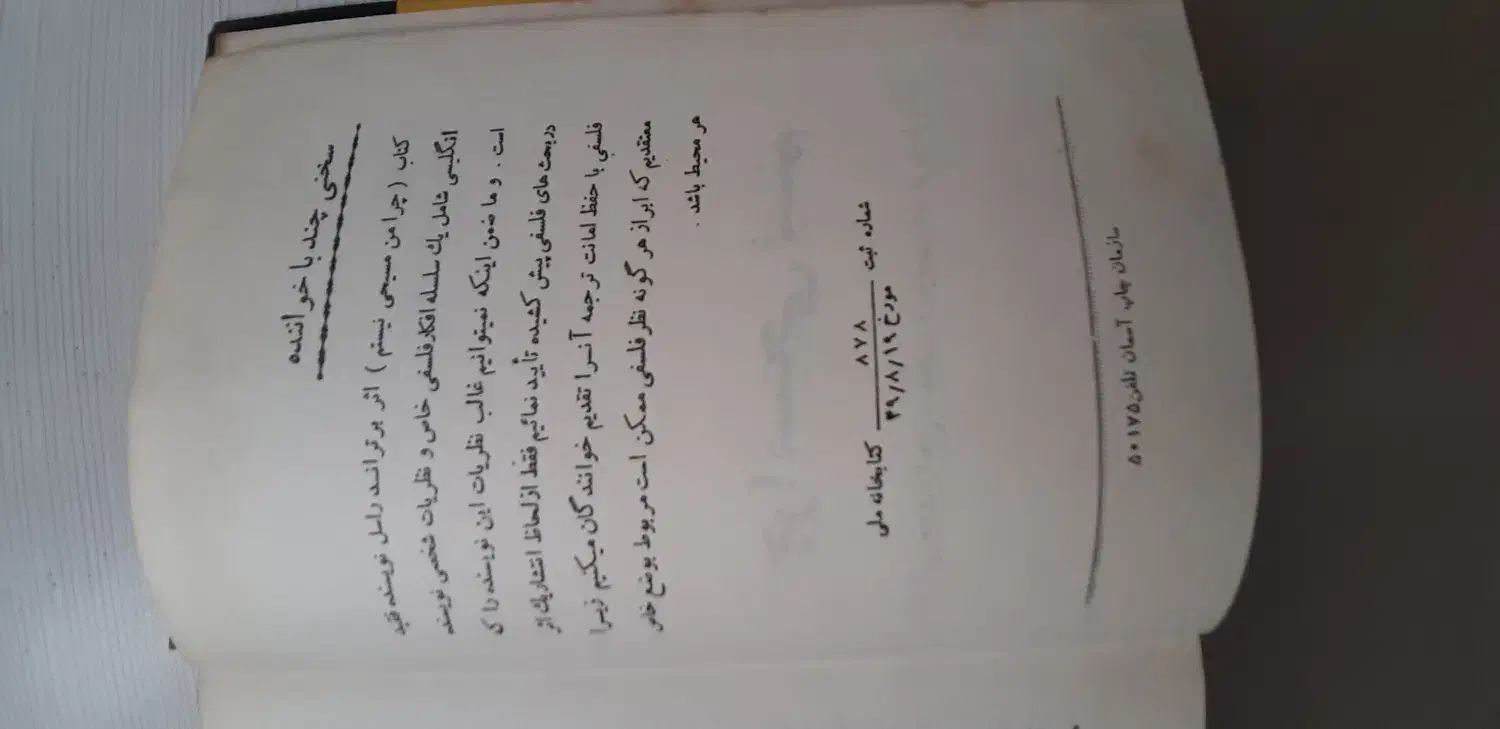 سخنی چند با خواننده
کتاب (چرا من مسیحی نیستم) اثر برتراند راسل نویسنده فقید
انگلیسی شامل یك سلسله افکار فلسفی خاص و نظریات شخصی نویسنده
است . و ما ضمن اینکه نمیتوانیم غالب نظریات این نویسنده را که
در بحث های فلسفی پیش کشیده تأیید نمائیم فقط از لحاظ انتشار یك اثر
فلسفی با حفظ امانت ترجمه آنرا تقدیم خوانندگان میکنیم زیرا
معتقدیم که ابراز هر گونه نظر فلسفی ممکن است مربوط بوضع خاص
هر محیط باشد .
شماره ثبت ۸۷۸ کتابخانه ملی
مورخ ۴۹/۸/۱۹
سازمان چاپ آسمان تلفن ۵۰۱۷۵